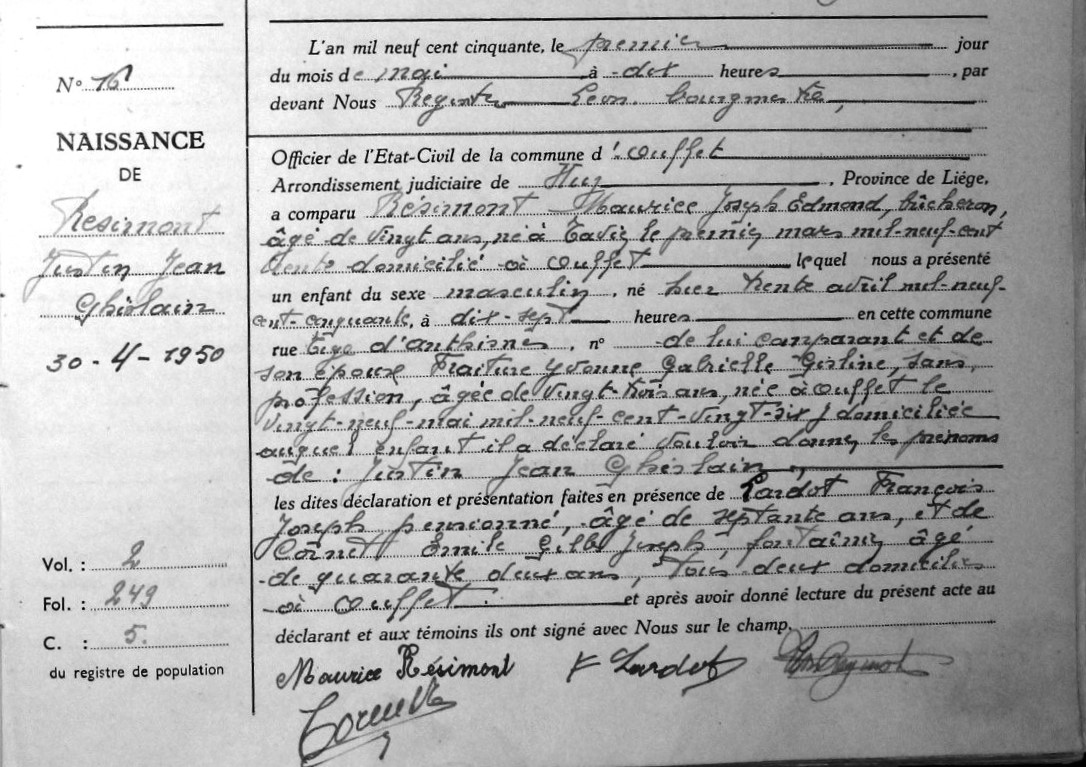 N° 16
NAISSANCE
DE
Résimont
Justin Jean
Ghislain
30-4-1950
Vol. : 2
Fol. : 249
C. : 5.
du registre de population
L'an mil neuf cent cinquante, le premier jour
du mois de mai à dix heures, par
devant Nous Léon bourgmestre,
Officier de l'Etat-Civil de la commune d'Ouffet
Arrondissement judiciaire de Huy, Province de Liége,
a comparu Résimont Maurice Joseph Edmond, bûcheron,
âgé de vingt ans, né à Tavier le premier mars mil-neuf-cent
trente domicilié à Ouffet lequel nous a présenté
un enfant du sexe masculin, né hier trente avril mil-neuf-
cent-cinquante, à dix-sept heures en cette commune
rue Tige d'anthisnes, n° de lui comparant et de
son épouse Traiture Yvonne Gabrielle, sans
profession, âgée de vingt-trois ans, née à Ouffet le
vingt-neuf-mai mil-neuf-cent-vingt-six, domiciliée
auquel enfant il a déclaré vouloir donner les prénoms
de : Justin Jean Ghislain,
les dites déclaration et présentation faites en présence de Lardot François
Joseph pensionné, âgé de septante ans, et de
Emile Joseph, âgé
de quarante deux ans, tous deux domiciliés
à Ouffet. et après avoir donné lecture du présent acte au
déclarant et aux témoins ils ont signé avec Nous sur le champ.
Maurice Résimont F Lardot